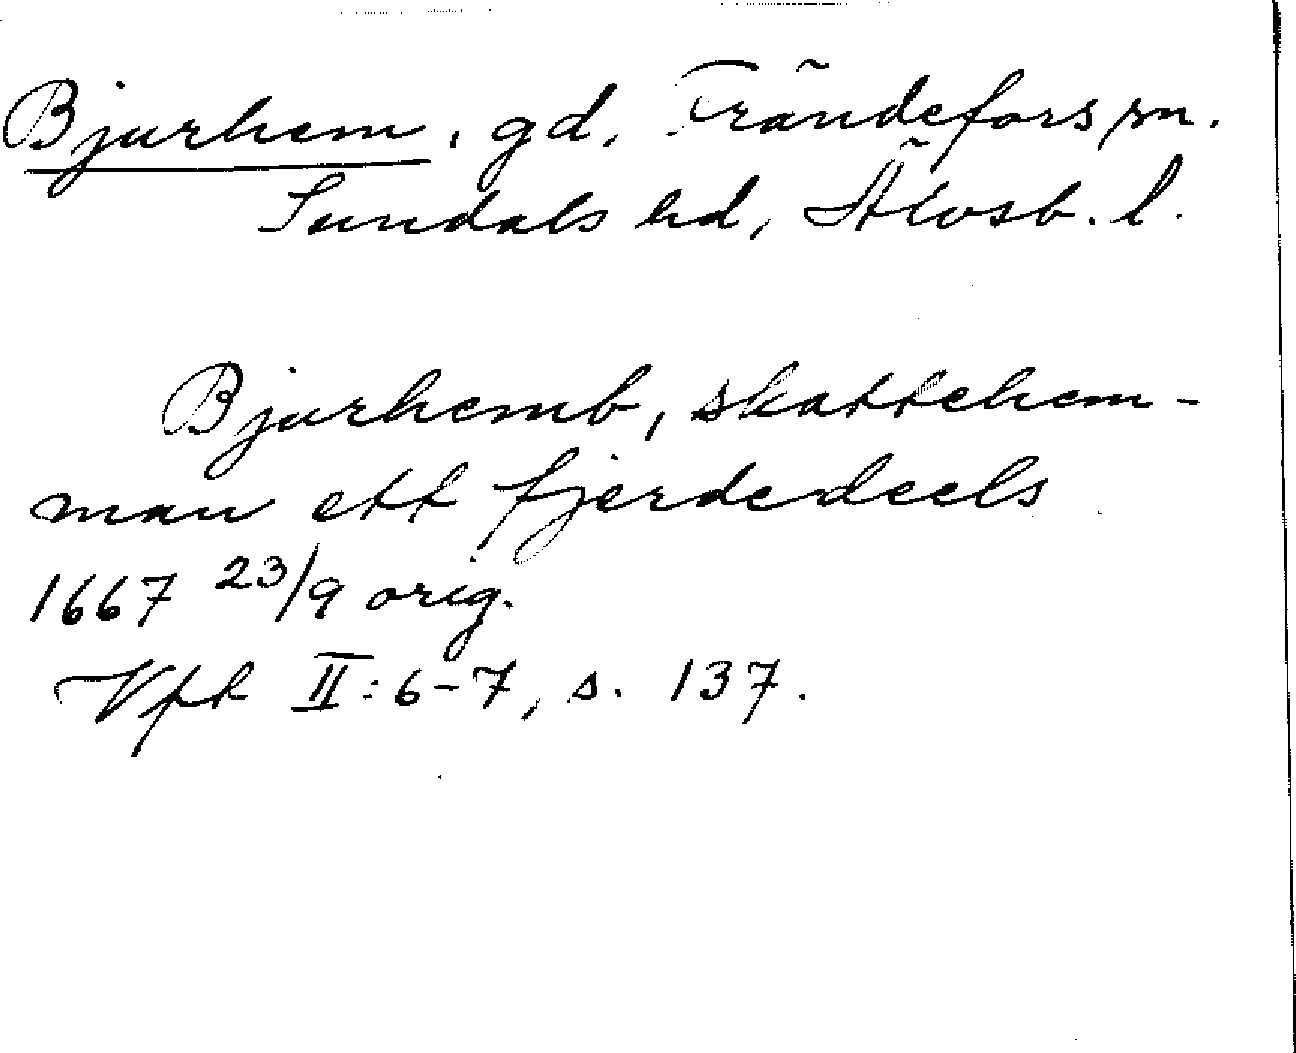 Bjurhem, gd, Frändefors sn.
Sundals hd, Älvsb. l.
Bjurhemb, skattehem-
man ett fjerdedeels
1667 23/9 orig.
Vfk II: 6-7, s. 137.